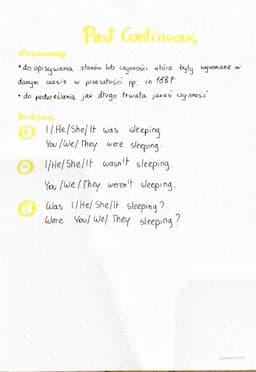 Past Continuous
stosowanie
• do opisywania stanów lub czynności które były wykonane w
danym czasie w przeszłości np. in 1887
• do podkreślania jak długo trwała jakaś czynność
budowa
+ I/He/She/It was sleeping.
You/We/They were sleeping.
- I/He/She/It wasn't sleeping.
You/We/They weren't sleeping.
? Was I/He/She/It sleeping?
Were You/We/They sleeping?